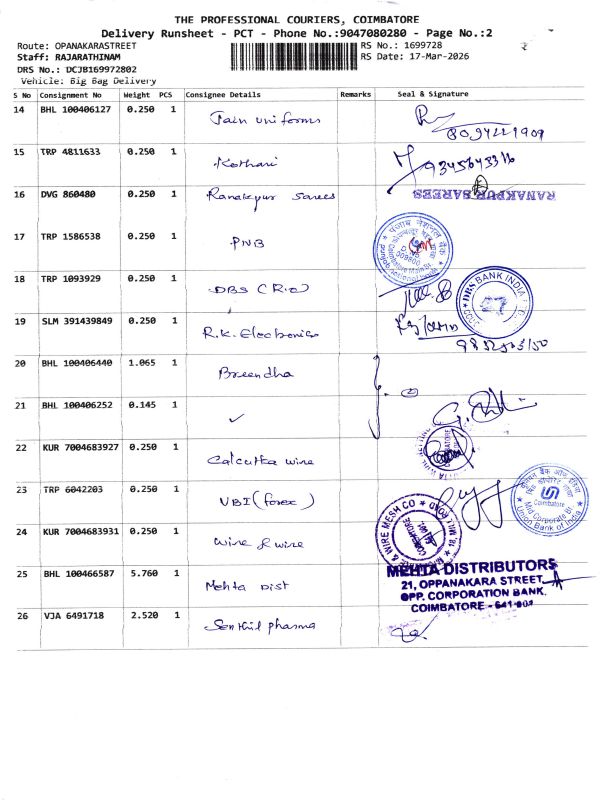 THE PROFESSIONAL COURIERS, COIMBATORE
Delivery Runsheet - PCT - Phone No.:9047080280 - Page No.:2
Route: OPANAKARASTREET
RS No.: 1699728
Staff: RAJARATHINAM
RS Date: 17-Mar-2026
DRS No.: DCJB169972802
Vehicle: Big Bag Delivery
S No Consignment No Weight PCS Consignee Details Remarks Seal & Signature
14 BHL 100406127 0.250 1 Jain uniforms
15 TRP 4811633 0.250 1 Kothari
16 DVG 860480 0.250 1 Ranakpur Sarees RANAKPUR SAREES
17 TRP 1586538 0.250 1 PNB
18 TRP 1093929 0.250 1 DBS DBS BANK INDIA
19 SLM 391439849 0.250 1 R.K. Electronics
20 BHL 100406440 1.065 1 Breendha
21 BHL 100406252 0.145 1 ✓
22 KUR 7004683927 0.250 1 Calcutta wire
23 TRP 6042203 0.250 1 UBI (forex) Coimbatore Union Bank of India
24 KUR 7004683931 0.250 1 wire & wire
25 BHL 100466587 5.760 1 Mehta Dist
MEHTA DISTRIBUTORS
21, OPPANAKARA STREET,
OPP. CORPORATION BANK,
COIMBATORE - 641 001
26 VJA 6491718 2.520 1 Senthil pharma